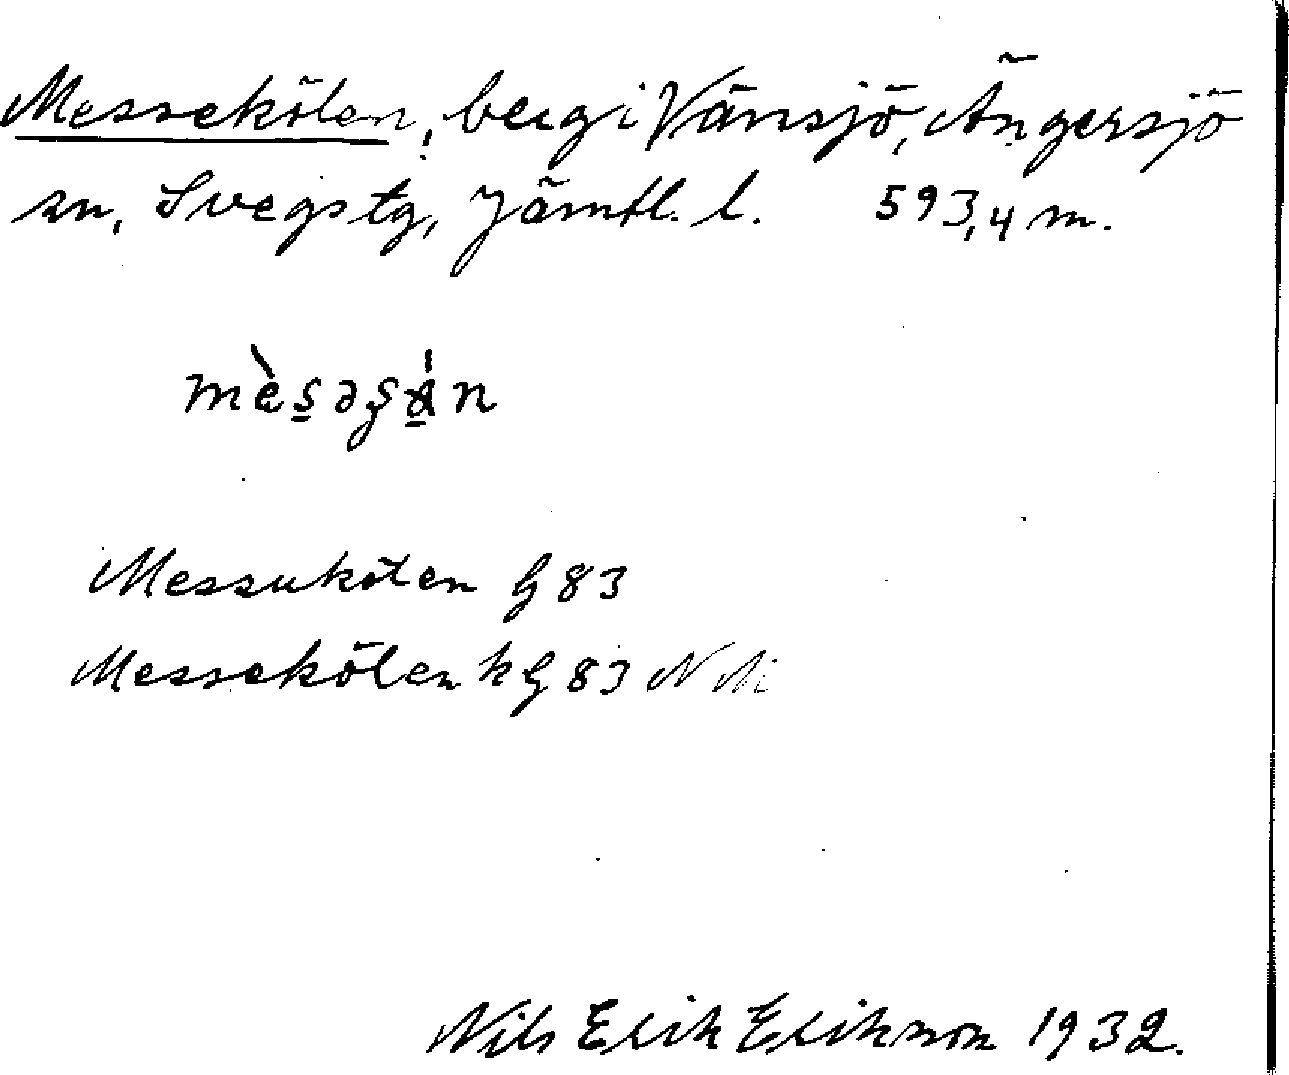 Messekölen, berg i Vänsjö, Ängersjö
sn, Svegs tg, Jämtl. l. 593,4 m.
Messukölen G 83
Messekölen k G 83 N
Nils Erik Erikson 1932.